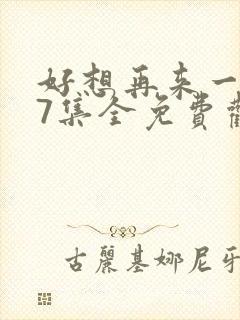 好想再来一
7集全免費觀
古麗基娜尼牙